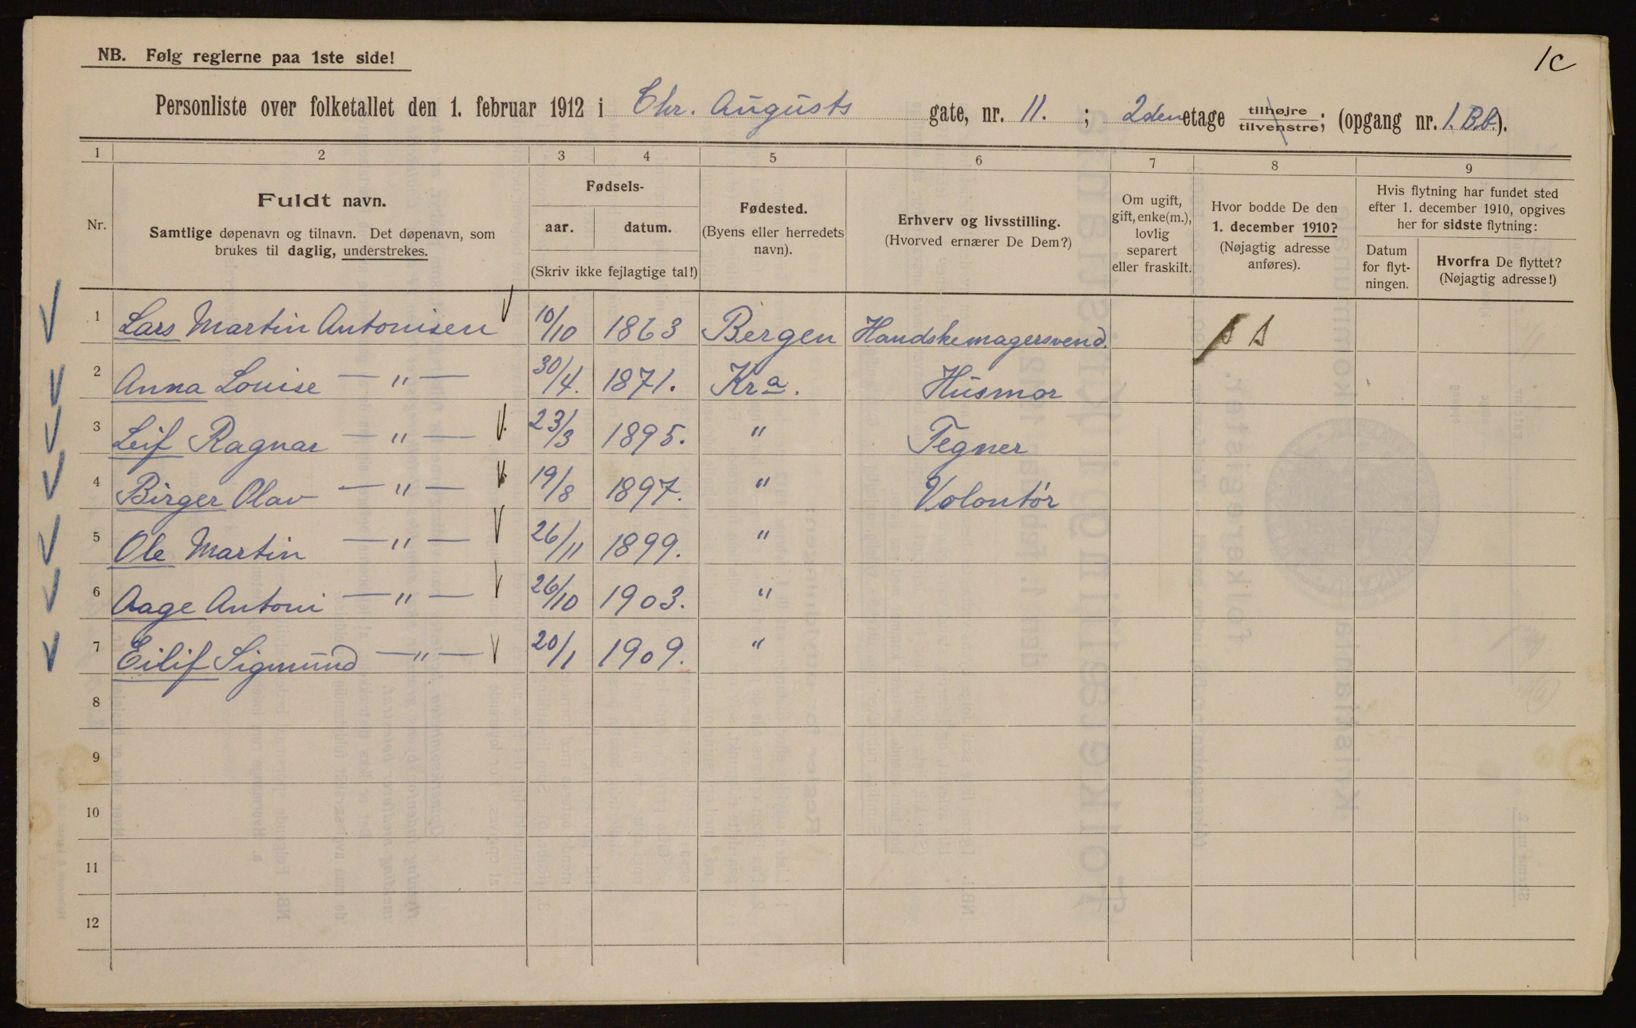 NB. Følg reglerne paa 1ste side!
1c
Personliste over folketallet den 1. februar 1912 i Chr. Augusts gate, nr. 11. ; 2den etage tilhøjre tilvenstre; (opgang nr. 1.B.b.).
1 2 3 4 5 6 7 8 9
Nr.
Fuldt navn.
Samtlige døpenavn og tilnavn. Det døpenavn, som
brukes til daglig, understrekes.
Fødsels-
aar. datum.
(Skriv ikke fejlagtige tal!)
Fødested.
(Byens eller herredets
navn).
Erhverv og livsstilling.
(Hvorved ernærer De Dem?)
Om ugift,
gift, enke(m.),
lovlig
separert
eller fraskilt.
Hvor bodde De den
1. december 1910?
(Nøjagtig adresse
anføres).
Hvis flytning har fundet sted
efter 1. december 1910, opgives
her for sidste flytning:
Datum
for flyt-
ningen.
Hvorfra De flyttet?
(Nøjagtig adresse!)
1 Lars Martin Antonisen 10/10 1863 Bergen Handskemagersvend.
2 Anna Louise — " — 30/4. 1871. Kra. Husmor
3 Leif Ragnar — " — 23/3 1895. " Tegner
4 Birger Olav — " — 19/8 1897. " Volontør
5 Ole Martin — " — 26/11 1899. "
6 Aage Antoni — " — 26/10 1903. "
7 Eilif Sigmund — " — 20/1 1909. "
8
9
10
11
12